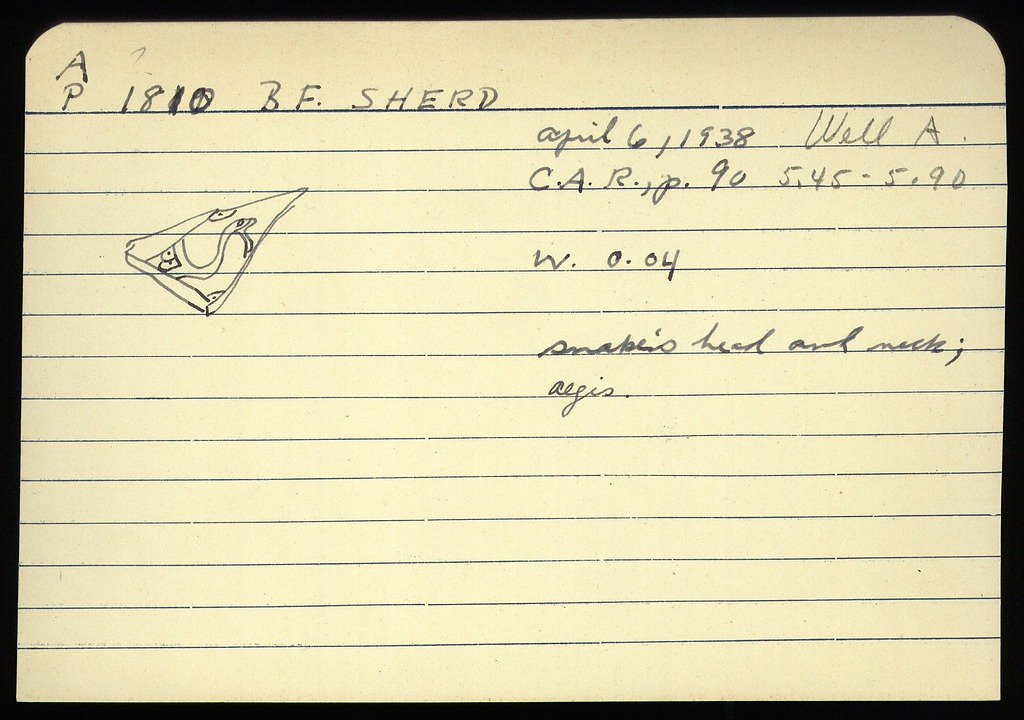 A
P 1810 BF. SHERD
april 6, 1938 Well A.
C.A.R., p. 90 5.45-5.90
W. 0.04
snake's head and neck;
aegis.